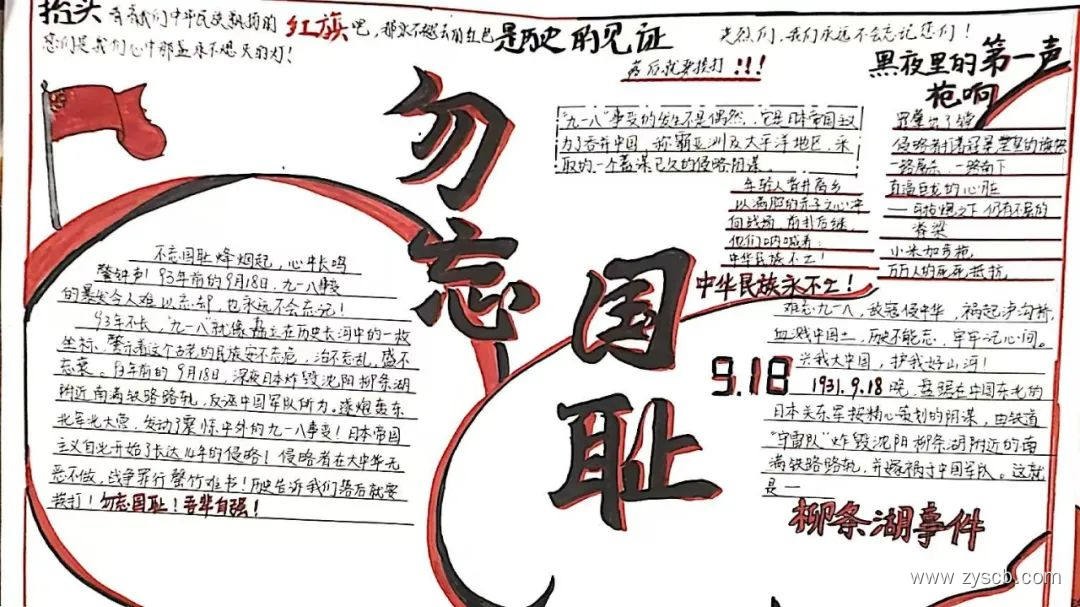 抬头看看我们中华民族飘扬的红旗吧，那永不褪去的红色是历史的见证
您们是我们心中那盏永不熄灭的灯！
先烈们，我们永远不会忘记您们！
落后就要挨打！！！
黑夜里的第一声
枪响
勿忘
国耻
"九一八"事变的发生不是偶然，它是日本帝国主义
为了吞并中国，称霸亚洲及太平洋地区，采
取的一个蓄谋已久的侵略阴谋。
年轻人背井离乡
以满腔的赤子之心冲
向战场，前赴后继，
他们呐喊着：
中华民族不亡！
中华民族永不亡！
侵略者
一路南下
直逼古老的心脏
之下仍有不屈的
脊梁
小米加步枪
万万人的死死抵抗
不忘国耻烽烟起，心中长鸣
警钟声！93年前的9月18日，九一八事变
的暴发令人难以忘却，也永远不会忘记！
93年不长，"九一八"就像矗立在历史长河中的一枚
坐标，警示着这个古老的民族安不忘危，治不忘乱，盛不
忘衰。93年前的9月18日，深夜日本炸毁沈阳柳条湖
附近南满铁路路轨，反诬中国军队所为。遂炮轰东
北军北大营，发动了震惊中外的九一八事变！日本帝国
主义自此开始了长达14年的侵略！侵略者在大中华无
恶不做，战争罪行罄竹难书！历史告诉我们落后就要
挨打！勿忘国耻！吾辈自强！
难忘九一八，敌寇侵中华，祸起泸沟桥，
血溅中国土，历史不能忘，牢牢记心间。
兴我大中国，护我好山河！
9.18
1931.9.18晚，盘踞在中国东北的
日本关东军按精心策划的阴谋，由铁道
"守备队"炸毁沈阳柳条湖附近的南
满铁路路轨，并嫁祸于中国军队。这就
是一
柳条湖事件
www.zyscb.com